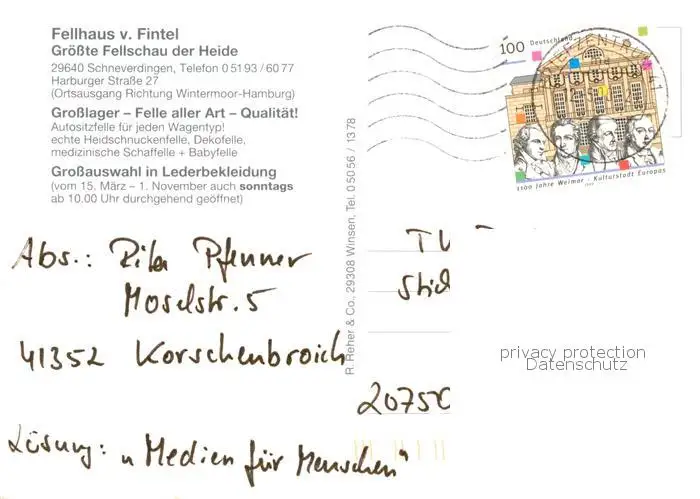 Fellhaus v. Fintel
Größte Fellschau der Heide
29640 Schneverdingen, Telefon 0 51 93 / 60 77
Harburger Straße 27
(Ortsausgang Richtung Wintermoor-Hamburg)
Großlager – Felle aller Art – Qualität!
Autositzfelle für jeden Wagentyp!
echte Heidschnuckenfelle, Dekofelle,
medizinische Schaffelle + Babyfelle
Großauswahl in Lederbekleidung
(vom 15. März – 1. November auch sonntags
ab 10.00 Uhr durchgehend geöffnet)
Abs.: Rita Pfenner
Moselstr. 5
41352 Korschenbroich
Lösung: „Medien für Menschen“
R. Reher & Co., 29308 Winsen, Tel. 0 50 56 / 13 78
100 Deutschland
1100 Jahre Weimar - Kulturstadt Europas
20750
privacy protection
Datenschutz